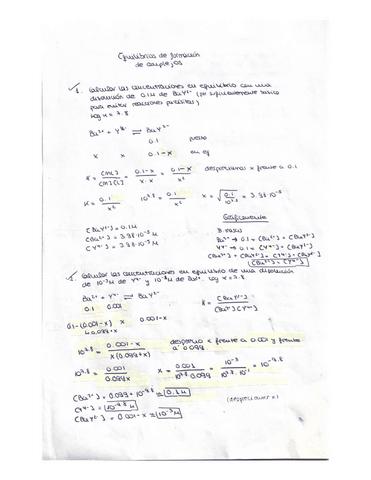 Equilibrios de formación
de complejos
1. Calcular las concentraciones en equilibrio con una
disolución de 0.1M de BaY²⁻ (pH suficientemente básico
para evitar reacciones parásitas)
log K = 7.8
Ba²⁺ + Y⁴⁻ ⇌ BaY²⁻
0.1
x x 0.1-x en eq
K = [ML]/[M][L] = 0.1-x/x·x = 0.1/x² despreciamos x frente a 0.1
K = 0.1/x² 10^7.8 = 0.1/x² x = √(0.1/10^7.8) = 3.98·10⁻⁵
[BaY²⁻] = 0.1M
[Ba²⁺] = 3.98·10⁻⁵ M
[Y⁴⁻] = 3.98·10⁻⁵ M
Gráficamente
B. masas
Ba²⁺ → 0.1 = [Ba²⁺] + [BaY²⁻]
Y⁴⁻ → 0.1 = [Y⁴⁻] + [BaY²⁻]
[Ba²⁺] + [BaY²⁻] = [Y⁴⁻] + [BaY²⁻]
[Ba²⁺] = [Y⁴⁻]
2. Calcular las concentraciones en equilibrio de una disolución
de 10⁻³M de Y⁴⁻ y 10⁻¹M de Ba²⁺. log K = 7.8.
Ba²⁺ + Y⁴⁻ ⇌ BaY²⁻
0.1 0.001
K = [BaY²⁻]/[Ba²⁺][Y⁴⁻]
0.1-(0.001-x) x 0.001-x
0.099+x
10^7.8 = 0.001-x/x(0.099+x) desprecio x frente a 0.001 y frente
a 0.099
10^7.8 = 0.001/0.099x x = 0.001/10^7.8·0.099 = 10⁻³/10^7.8·10⁻¹ = 10^-9.8
[Ba²⁺] = 0.099 + 10^-9.8 = 0.1M
[Y⁴⁻] = 10^-9.8 M (despreciamos x)
[BaY²⁻] = 0.001-x = 10⁻³M